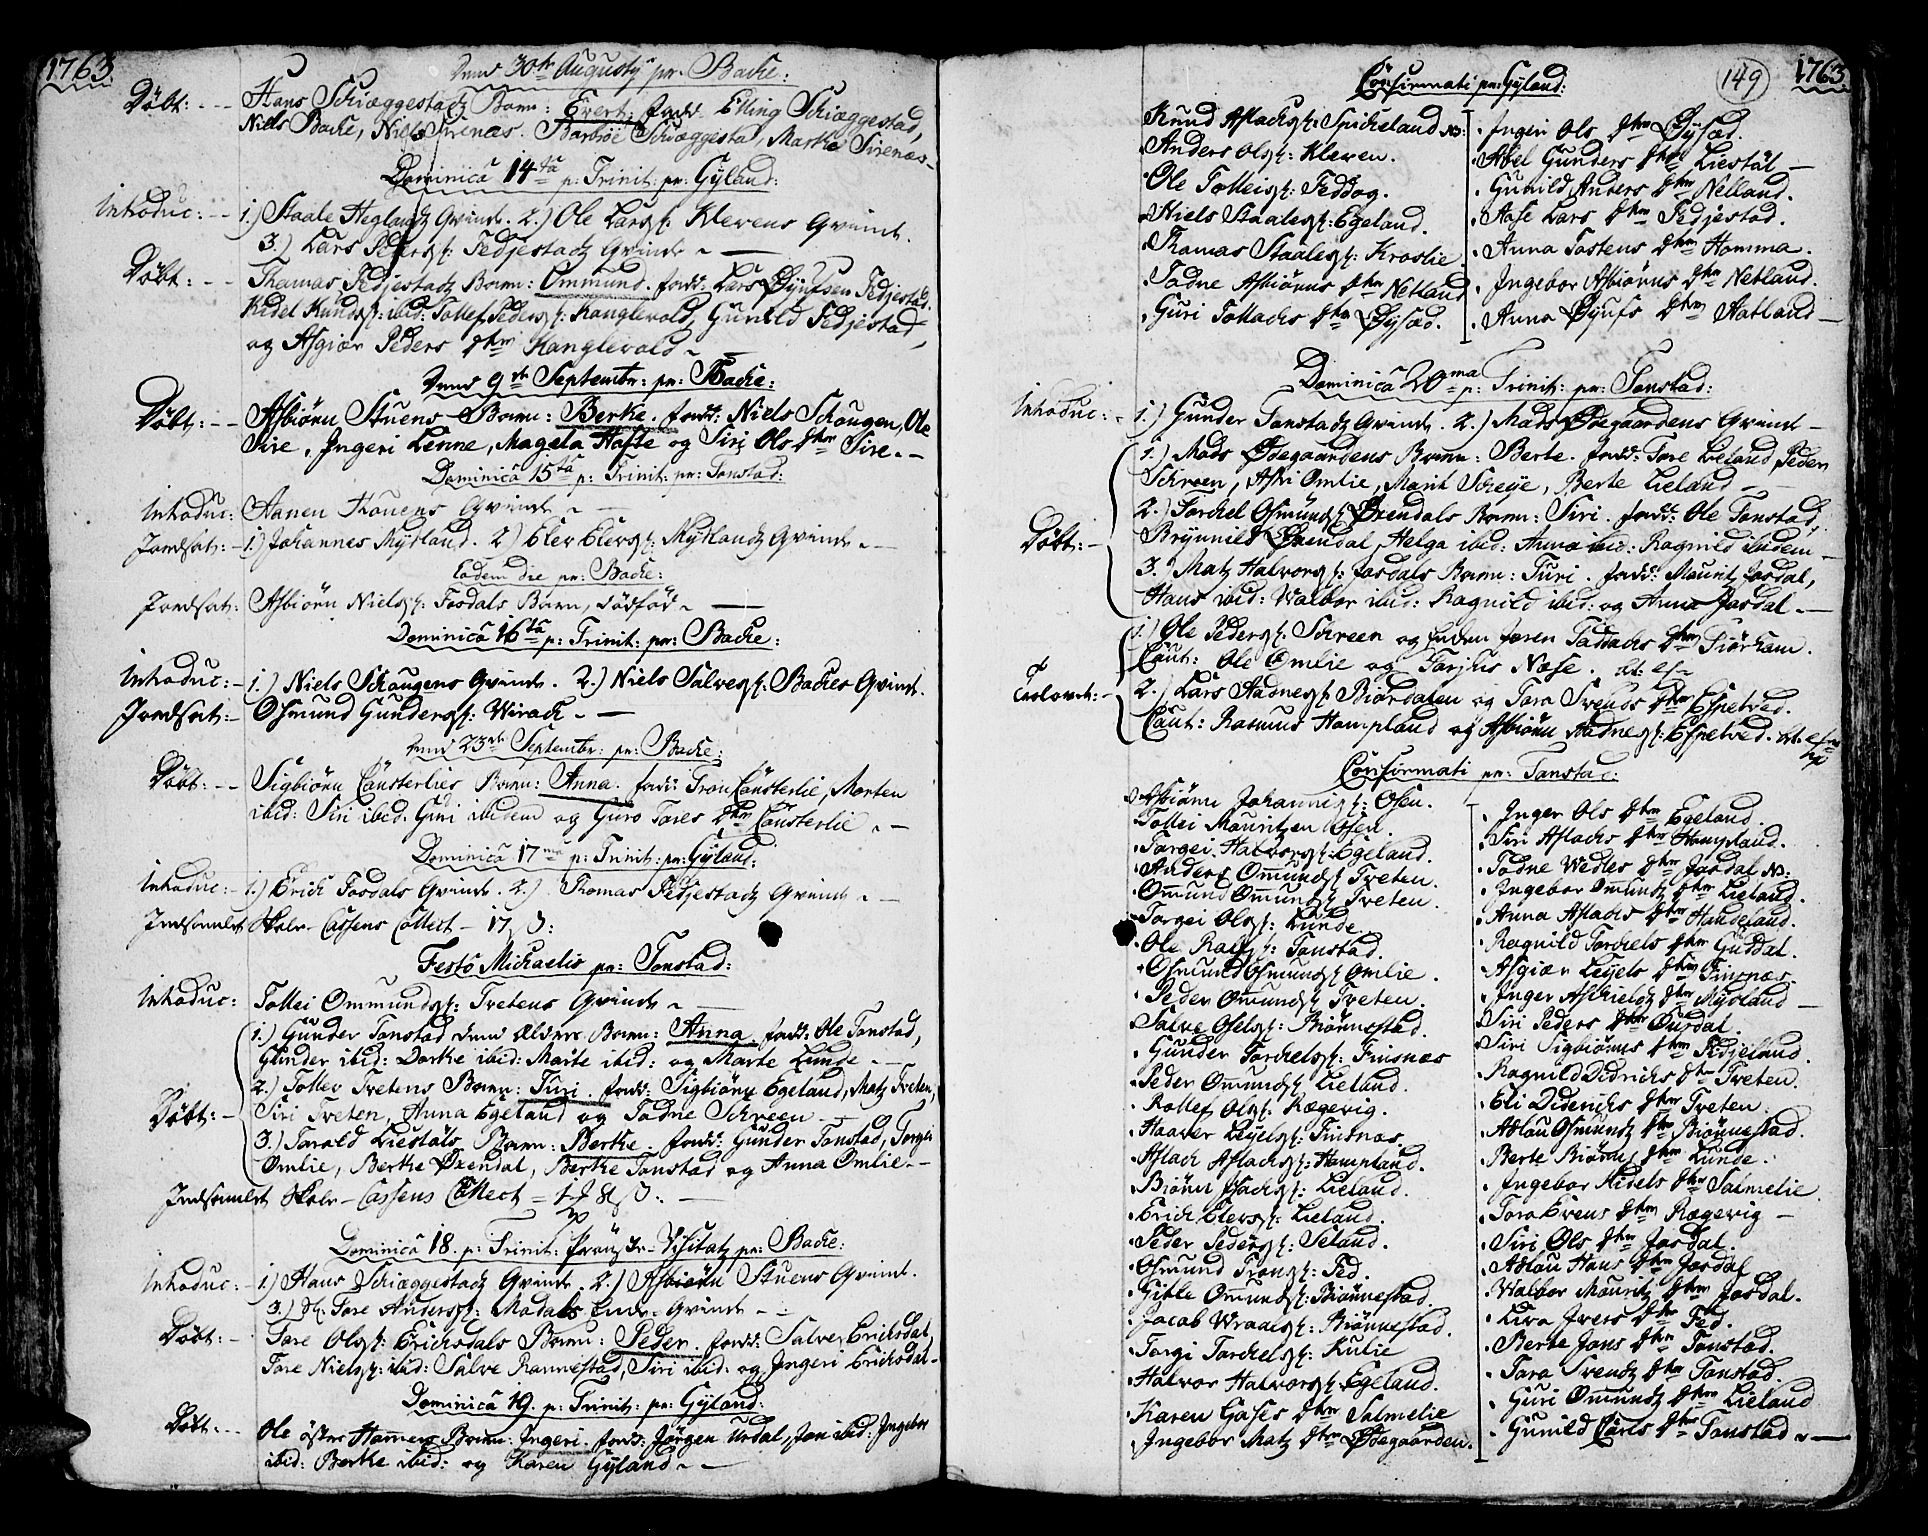 1763.
Dend 30te Augusty pr: Backe:
Döbt: -- Hans Schiæggestadz Barn: Evert. fadd: Elling Schiæggestad,
Niels Backe, Niels Sirenæs. Barbroe Schiæggesta, Marthe Sirenæs.
Dominica 14ta p: Trinit: pr: Gyland:
Introduc: -- 1.) Staale Heglandz Qvinde. 2.) Ole Larss: Klevens Qvinde.
3.) Lars Peders: Fedjestadz Qvinde ~
Döbt: -- Thomas Fedjestadz Barn: Ommund. fadd: Lars Øyufsen Fedjestad,
Kidel Knuds: ibid: Tollef Peders: Kanglevold, Gunild Fedjestad,
og Asgiær Peders dtr Kanglevold ~
Dend 9de Septembr: pr: Backe:
Döbt: -- Asbiörn Stuens Barn: Berte. fadd: Niels Schougen, Ole
Sire, Ingeri Lenne, Magela Hafte og Siri Ols dtr Sire. -
Dominica 15ta p: Trinit: pr: Tonstad:
Introduc: Aanen Houens Qvinde ~
Jordsat: - 1.) Johannes Mysland. 2.) Elev Elevs: Myslandz Qvinde ~
Eodem die pr: Backe:
Jordsat: Asbiörn Niels: Josdals Barn, dödfød ~
Dominica 16ta p: Trinit: pr: Backe:
Introduc: - 1.) Niels Schougens Qvinde. 2.) Niels Salves: Backes Qvind.
Jordsat: - Osmund Gunders: Wirach. -
Dend 23de Septembr: pr: Backe:
Döbt: -- Sigbiörn Cönsterlies Barn: Anna. fadd: Tron Cönsterlie, Morten
ibid: Siri ibid: Guri ibidem og Guro Tores dtr Cönsterlie. -
Dominica 17ma p: Trinit: pr: Gyland:
Introduc: - 1.) Erich Josdals Qvinde. 2.) Thomas Fedjestadz Qvinde ~
Indsamlet Skole-Cassens Collect - 17 s:
Festo Michaelis pr: Tonstad:
Introduc: Tollei Ommunds: Tvetens Qvinde ~
1.) Gunder Tonstad dend Ældres Barn: Anna. fadd: Ole Tonstad,
Gunder ibid: Dorthe ibid: Marte ibid: og Marte Lunde. -
2.) Tollev Tvetens Barn: Turi. fadd: Sigbiörn Egeland, Matz Tveten,
Döbt: - Siri Tveten, Anna Egeland og Tadne Schreen -
3.) Torald Liestöls Barn: Berthe. fadd: Gunder Tonstad, Torgei
Omlie, Berthe Øxendal, Berthe Tonstad og Anna Omlie. -
Indsamlet Skole-Cassens Collect = 8 s: -
Dominica 18. p: Trinit: Visitatz pr: Backe:
Introduc: - 1.) Hans Schiæggestadz Qvinde. 2.) Asbiörn Stuens Qvind.
3.) Tore Anders: Modals Qvinde -
Döbt: - Tore Ols: Erichsdals Barn: Peder. fadd: Salve Erichsdal,
Tore Niels: ibid: Salve Rannestad, Siri ibid: og Ingeri Erichsdal -
Dominica 19. p: Trinit: pr: Gyland:
Döbt: - Ole Hamers Barn: Ingeri. fadd: Jörgen Urdal, Jon ibid: Ingebor
ibid: Berthe ibid: og Karen Gyland ~
149
1763
Confirmati pr: Gyland:
Knud Aslachs: Spicheland NB:
Anders Ols: Kleven.
Ole Tolleis: Feddog.
Niels Staales: Egeland.
Thomas Staales: Kroslie.
Tadne Asbiörns dtr Netland
Guri Tollachs dtr Øysæd.
Ingeri Ols dtr Øysæd.
Abel Gunders dtr Liestöl -
Gunild Anders dtr Netland.
Aase Lars dtr Fedjestad.
Anna Tostens dtr Homma.
Ingebor Asbiörns dtr Netland.
Anna Øyufs dtr Aatland -
Dominica 20ma p: Trinit: pr: Tonstad:
Introduc: - 1.) Gunder Tonstadz Qvinde. 2.) Mads Ødegaardens Qvind -
1.) Mads Ødegaardens Barn: Berte. fadd: Tore Lieland, Peder
Schreen, Astri Omlie, Marit Schreye, Berte Lieland -
2.) Torchel Osmunds: Øxendals Barn: Siri. fadd: Ole Tonstad,
Döbt: - Brynnild Øxendal, Helga ibid: Anna ibid: Ragnild ibidem -
3. Matz Halvors: Josdals Barn: Turi. fadd: Mauritz Josdal,
Hans ibid: Walbor ibid: Ragnild ibid: og Anna Josdal. -
1.) Ole Peders: Schreen og Enken Joren Taddachs dtr Fiörham.
Caut: Ole Omlie og Torjus Næse.
Trolovede: - 2.) Lars Aadnes: Biordalen og Tora Svends dtr Espetved.
Caut: Rasmus Hompland og Asbiörn Aadnes: Espetved.
Confirmati pr: Tonstad:
Asbiörn Johannis: Osen.
Tollei Mauritzen Osen.
Torgei Halvors: Egeland.
Anders Ommunds: Tveten.
Ommund Ommunds: Tveten.
Torgei Ols: Lunde.
Ole Rolfs: Tonstad.
Osmund Osmunds: Omlie.
Peder Ommunds: Tveten.
Salve Osels: Biörnestad.
Gunder Torchels: Finsnæs
Peder Ommunds: Lieland.
Rollef Ols: Rægevig.
Haaver Leyels: Finsnæs.
Aslach Aslachs: Hompland.
Biörn Isachs: Lieland.
Erich Elevs: Lieland.
Peder Peders: Seland.
Osmund Trons: Fed.
Gitle Ommunds: Biörnestad.
Jacob Wraals: Biörnestad.
Torgi Torchels: Kulie
Halvor Halvors: Egeland.
Karen Gases dtr Salmelie
Ingebor Matz dtr Ødegaarden.
Inger Ols dtr Egeland.
Siri Aslachs dtr Hompland.
Tadne Wedles dtr Josdal NB:
Ingebor Omunds dtr Lieland.
Anna Aslachs dtr Haugeland.
Ragnild Torchels dtr Gusdal.
Asgiær Leyels dtr Finsnæs.
Inger Aschields dtr Mysland -
Siri Peders dtr Gusdal.
Siri Sigbiörns dtr Fidjeland.
Ragnild Didrichs dtr Tveten.
Eli Diderichs dtr Tveten.
Adlau Osmundz dtr Biörnestad.
Berte Biörns dtr Lunde.
Ingebor Kidels dtr Salmelie.
Tora Evens dtr Rægevig -
Siri Ols dtr Josdal.
Adlau Hans dtr Josdal
Walbor Mauritz dtr Josdal.
Liva Ivers dtr Fed.
Berte Jons dtr Tonstad.
Tora Svends dtr Tonstad.
Guri Ommunds dtr Lieland
Gunild Carls dtr Tonstad ~